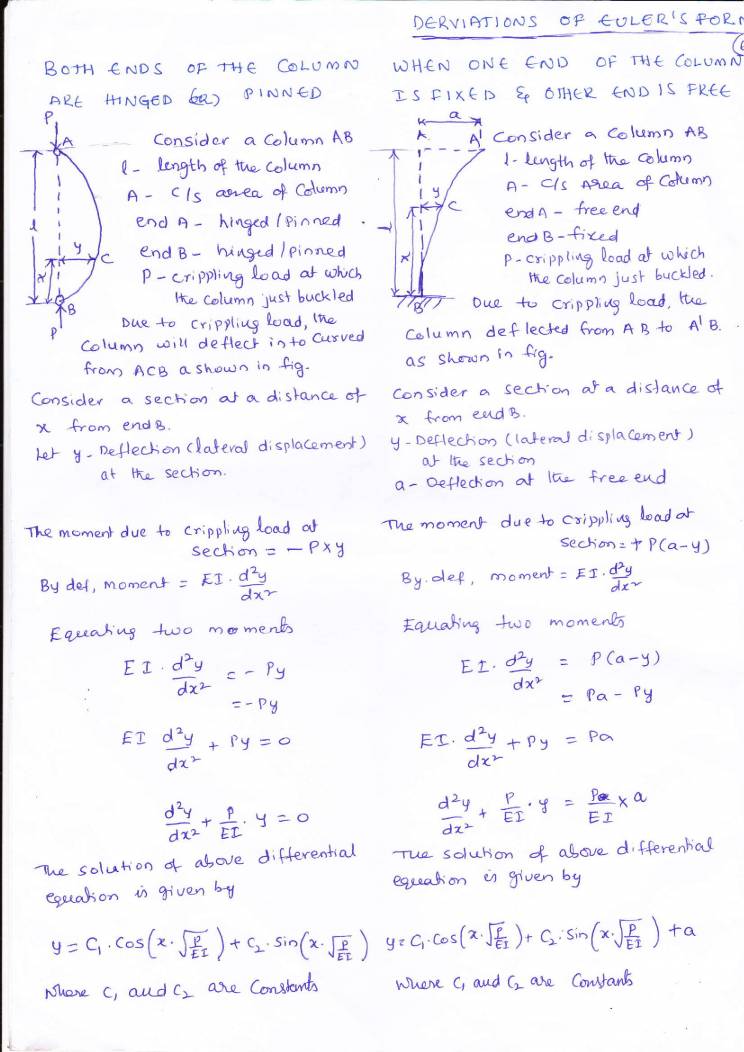 DERVIATIONS OF EULER'S FORM
BOTH ENDS OF THE COLUMN
ARE HINGED (OR) PINNED
P
A
l
y
C
x
B
P
Consider a Column AB
l - length of the Column
A - C/s area of Column
end A - hinged / Pinned
end B - hinged / Pinned
P - crippling load at which
the Column just buckled
Due to crippling load, the
Column will deflect in to Curved
from ACB a shown in fig.
Consider a section at a distance of
x from end B.
Let y - Deflection (lateral displacement)
at the section.
The moment due to crippling load at
section = - P x y
By def, moment = EI . d²y/dx²
Equating two moments
EI . d²y/dx² = - Py
= - Py
EI d²y/dx² + Py = 0
d²y/dx² + P/EI . y = 0
The solution of above differential
equation is given by
y = C₁ . Cos(x . √P/EI) + C₂ . Sin(x . √P/EI)
where C₁ and C₂ are Constants
WHEN ONE END OF THE COLUMN
IS FIXED & OTHER END IS FREE
a
A
A'
y
C
l
x
B
Consider a Column AB
l - length of the Column
A - C/s Area of Column
end A - free end
end B - fixed
P - crippling load at which
the column just buckled.
Due to crippling load, the
Column deflected from AB to A'B.
as shown in fig.
Consider a section at a distance of
x from end B.
y - Deflection (lateral displacement)
at the section
a - Deflection at the free end
The moment due to crippling load at
section = + P(a-y)
By def, moment = EI . d²y/dx²
Equating two moments
EI . d²y/dx² = P(a-y)
= Pa - Py
EI . d²y/dx² + Py = Pa
d²y/dx² + P/EI . y = P/EI x a
The solution of above differential
equation is given by
y = C₁ . Cos(x . √P/EI) + C₂ . Sin(x . √P/EI) + a
where C₁ and C₂ are Constants